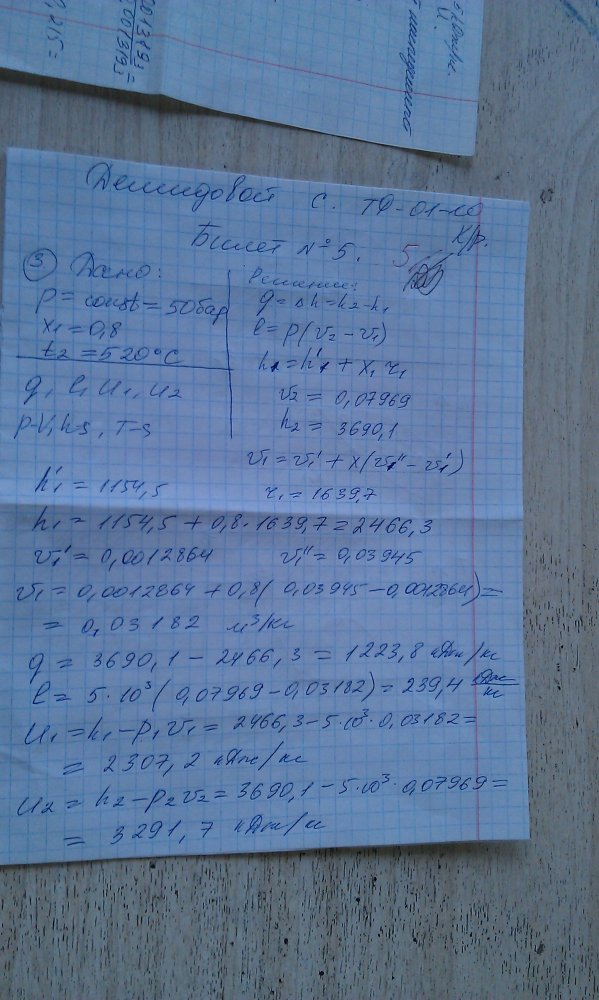 Демидовой С. ТФ-01-10
к/р.
Билет №5. 5
③ Дано:
p = const = 50 бар
x₁ = 0,8
t₂ = 520°C
q, l, u₁, u₂
p-v, h-s, T-s
Решение:
q = Δh = h₂ - h₁
l = p(v₂ - v₁)
h₁ = h₁' + x₁ r₁
v₂ = 0,07969
h₂ = 3690,1
v₁ = v₁' + x(v₁'' - v₁')
h₁' = 1154,5 r₁ = 1639,7
h₁ = 1154,5 + 0,8 · 1639,7 = 2466,3
v₁' = 0,0012864 v₁'' = 0,03945
v₁ = 0,0012864 + 0,8(0,03945 - 0,0012864) =
= 0,03182 м³/кг
q = 3690,1 - 2466,3 = 1223,8 кДж/кг
l = 5·10³(0,07969 - 0,03182) = 239,4 кДж/кг
u₁ = h₁ - p₁v₁ = 2466,3 - 5·10³·0,03182 =
= 2307,2 кДж/кг
u₂ = h₂ - p₂v₂ = 3690,1 - 5·10³·0,07969 =
= 3291,7 кДж/кг